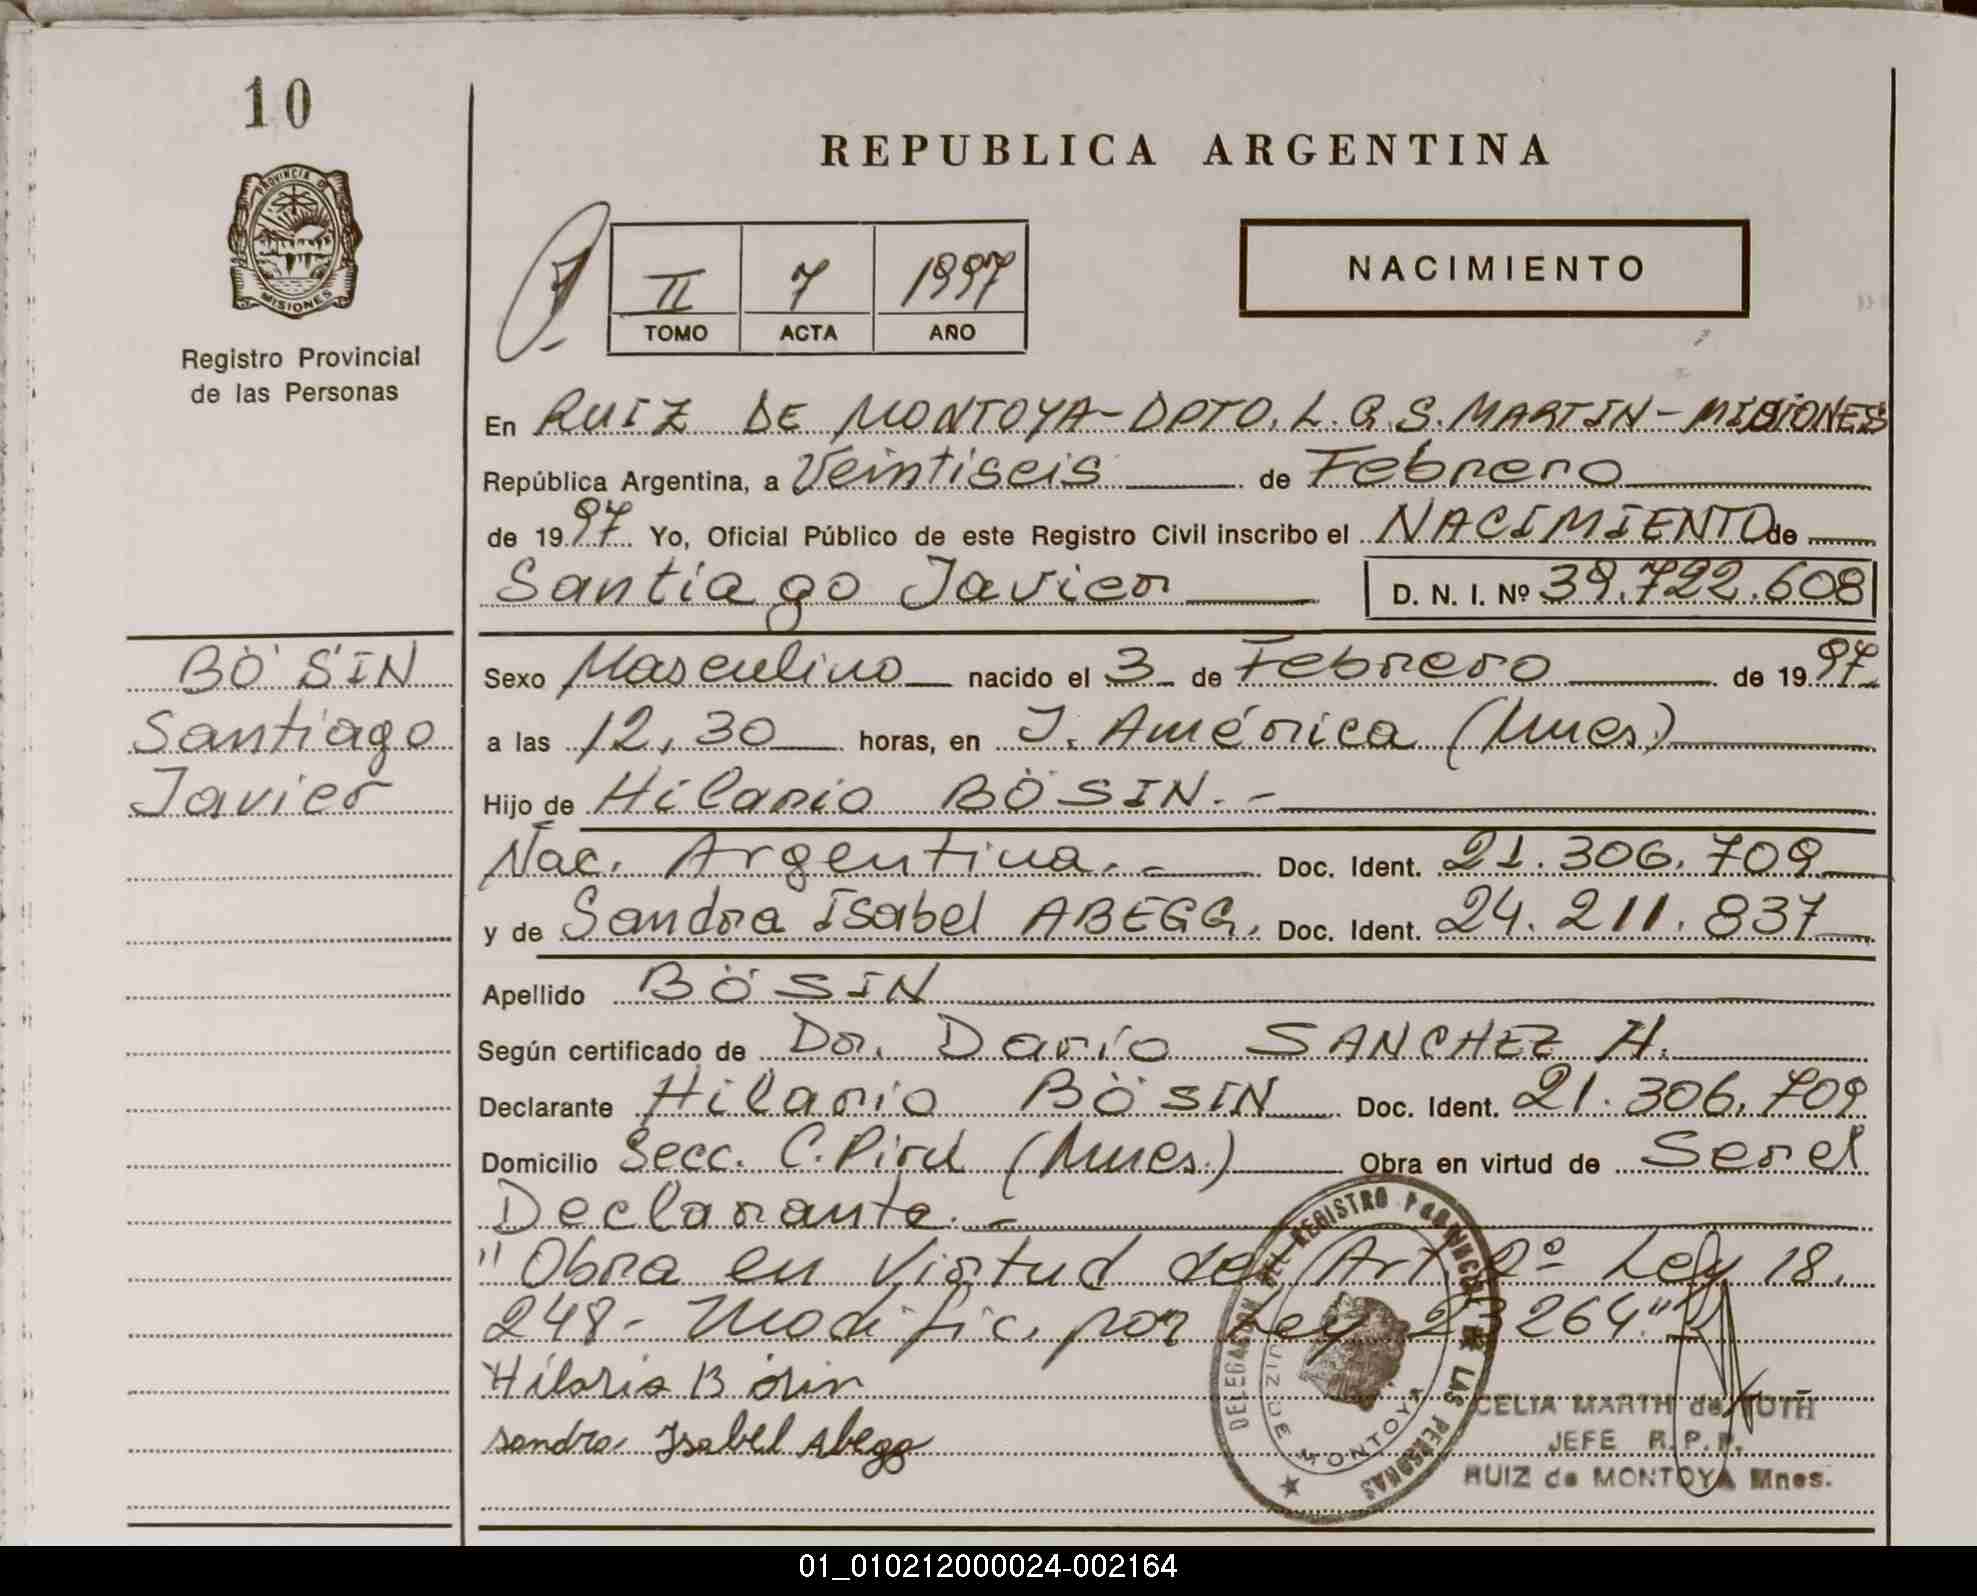 10
REPUBLICA ARGENTINA
PROVINCIA DE
MISIONES
Registro Provincial
de las Personas
II 7 1997
TOMO ACTA AÑO
NACIMIENTO
En RUIZ DE MONTOYA - DPTO. L. G. S. MARTIN - MISIONES
República Argentina, a Veintiseis de Febrero
de 1997 Yo, Oficial Público de este Registro Civil inscribo el NACIMIENTO de
Santiago Javier D. N. I. Nº 39.722.608
BÖSIN
Santiago
Javier
Sexo Masculino nacido el 3 de Febrero de 1997
a las 12,30 horas, en J. América (Mnes.)
Hijo de Hilario BÖSIN.-
Nac. Argentina.- Doc. Ident. 21.306.709
y de Sandra Isabel ABEGG, Doc. Ident. 24.211.837
Apellido BÖSIN
Según certificado de Dr. Darío SANCHEZ H.
Declarante Hilario BÖSIN Doc. Ident. 21.306.709
Domicilio Secc. C. Pirú (Mnes.) Obra en virtud de Ser el
Declarante.-
"Obra en Virtud del Art. 2º Ley 18.
248- Modific. por Ley 23264."
Hilario Bösin
Sandra Isabel Abegg
DELEGACION DEL REGISTRO PROVINCIAL DE LAS PERSONAS
RUIZ DE MONTOYA
CELIA MARTH de TOTH
JEFE R.P.P.
RUIZ de MONTOYA Mnes.
01_010212000024-002164